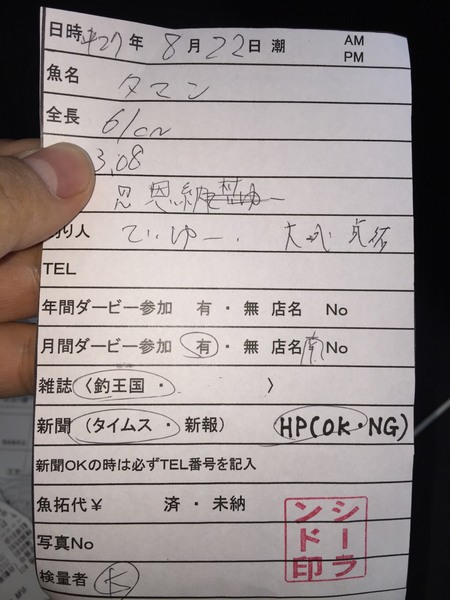 日時 平27年 8月22日 潮 AM PM
魚名 タマン
全長 61cm
3.08
恩納
釣り人 てぃーゆー
TEL
年間ダービー参加 有・無 店名 No
月間ダービー参加 有・無 店名 南 No
雑誌 〈釣王国・ 〉
新聞 (タイムス・新報) HP(OK・NG)
新聞OKの時は必ずTEL番号を記入
魚拓代¥ 済・未納
写真No
検量者 K
シーランド印